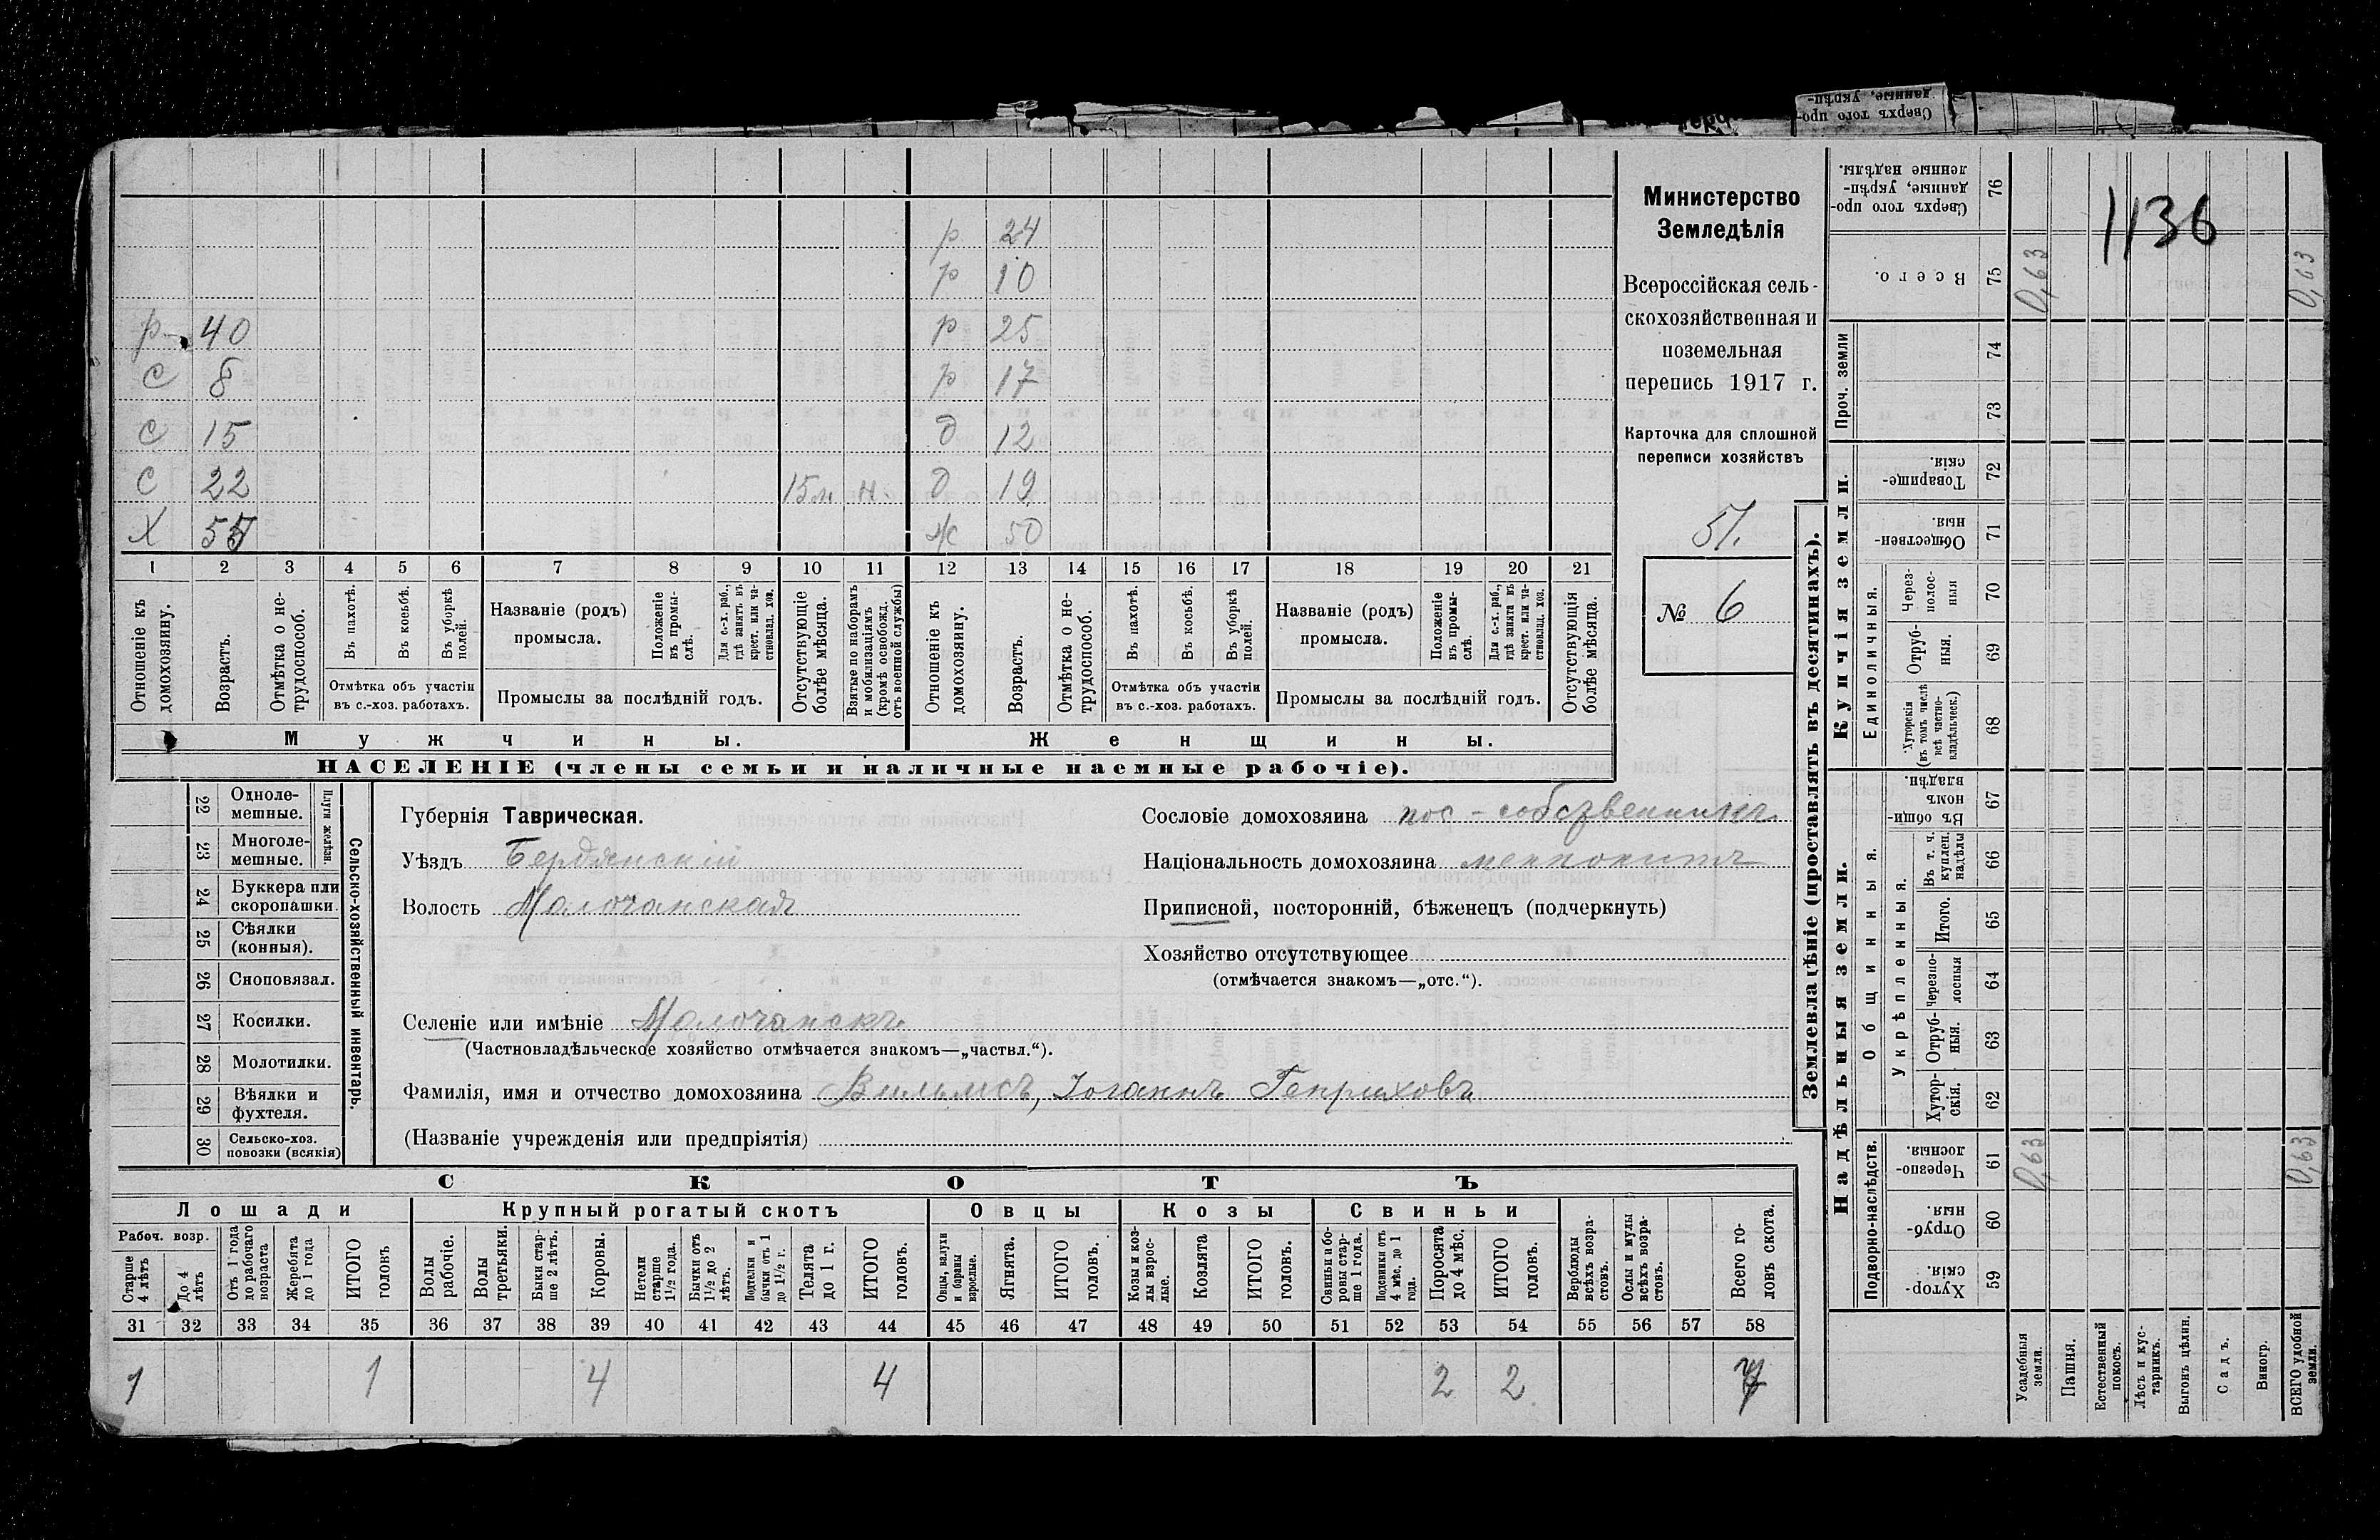 Сверхъ того про-
данные, укрѣп-
1136
р 24
р 10
р 40 р 25
С 8 р 17
С 15 д 12
С 22 15 м. н. д 19
Х 55 ж 50
1 2 3 4 5 6 7 8 9 10 11 12 13 14 15 16 17 18 19 20 21
Отношеніе къ домохозяину.
Возрастъ.
Отмѣтка о не-трудоспособ.
Въ пахотѣ.
Въ косьбѣ.
Въ уборкѣ полей.
Отмѣтка объ участіи въ с.-хоз. работахъ.
Названіе (родъ) промысла.
Положеніе въ промы-слѣ.
Для с.-х. раб., гдѣ занятъ въ крест. или ча-стновлад. хоз.
Промыслы за послѣдній годъ.
Отсутствующіе болѣе мѣсяца.
Взятые по наборамъ и мобилизаціямъ (кромѣ освобожд. отъ военной службы)
Отношеніе къ домохозяину.
Возрастъ.
Отмѣтка о не-трудоспособ.
Въ пахотѣ.
Въ косьбѣ.
Въ уборкѣ полей.
Отмѣтка объ участіи въ с.-хоз. работахъ.
Названіе (родъ) промысла.
Положеніе въ промы-слѣ.
Для с.-х. раб., гдѣ занята въ крест. или ча-стновлад. хоз.
Промыслы за послѣдній годъ.
Отсутствующія болѣе мѣсяца.
Мужчины.
Женщины.
НАСЕЛЕНІЕ (члены семьи и наличные наемные рабочіе).
Министерство
Земледѣлія
Всероссійская сель-
скохозяйственная и
поземельная
перепись 1917 г.
Карточка для сплошной
переписи хозяйствъ
51.
№ 6
22 Одноле-мешные.
23 Многоле-мешные.
Плуги желѣзн.
24 Буккера или скоропашки.
25 Сѣялки (конныя).
26 Сноповязал.
27 Косилки.
28 Молотилки.
29 Вѣялки и фухтеля.
30 Сельско-хоз. повозки (всякія)
Сельско-хозяйственный инвентарь.
Губернія Таврическая.
Уѣздъ Бердянскій
Волость Молочанская
Сословіе домохозяина пос-собственникъ
Національность домохозяина меннонитъ
Приписной, посторонній, бѣженецъ (подчеркнуть)
Хозяйство отсутствующее
(отмѣчается знакомъ—„отс.“).
Селеніе или имѣніе Молочанскъ
(Частновладѣльческое хозяйство отмѣчается знакомъ—„частвл.“).
Фамилія, имя и отчество домохозяина Вильмсъ, Іоганнъ Генриховъ
(Названіе учрежденія или предпріятія)
СКОТЪ
Лошади Крупный рогатый скотъ Овцы Козы Свиньи
Рабоч. возр.
Старше 4 лѣтъ
До 4 лѣтъ
Отъ 1 года до рабочаго возраста
Жеребята до 1 года
ИТОГО головъ
Волы рабочіе.
Волы третьяки.
Быки стар-ше 2 лѣтъ.
Коровы.
Нетели старше 1½ года.
Бычки отъ 1½ до 2 лѣтъ.
Подтелки и бычки отъ 1 до 1½ г.
Телята до 1 г.
ИТОГО головъ.
Овцы, валухи и бараны взрослые.
Ягнята.
ИТОГО головъ.
Козы и коз-лы взрос-лые.
Козлята
ИТОГО головъ.
Свиньи и бо-ровы стар-ше 1 года.
Подсвинки отъ 4 мѣс. до 1 года.
Поросята до 4 мѣс.
ИТОГО головъ.
Верблюды всѣхъ возра-стовъ.
Ослы и мулы всѣхъ возра-стовъ.
Всего го-ловъ скота.
31 32 33 34 35 36 37 38 39 40 41 42 43 44 45 46 47 48 49 50 51 52 53 54 55 56 57 58
1 1 4 4 2 2 7
Землевладѣніе (проставлять въ десятинахъ).
Купчія земли.
Надѣльныя земли.
Единоличныя.
Общинныя.
Укрѣпленныя.
Подворно-наслѣдств.
Проч. земли
Сверхъ того про-данные, укрѣп-ленные надѣлы. 76
Всего. 75
74
73
Товарище-скія. 72
Обществен-ныя. 71
Через-полос-ныя 70
Отруб-ныя. 69
Хуторскія (въ томъ числѣ всѣ частно-владѣльческ.) 68
Въ общи-номъ владѣн. 67
Въ т. ч. куплен. надѣлы 66
Итого. 65
Черезпо-лосныя 64
Отруб-ныя. 63
Хутор-скія. 62
Черезпо-лосныя. 61
Отруб-ныя. 60
Хутор-скія. 59
0,63 0,63
0,63 0,63
Усадебныя земли.
Пашня.
Естественный покосъ.
Лѣсъ и кус-тарникъ.
Выгонъ цѣлин.
Садъ.
Виногр.
ВСЕГО удобной земли.